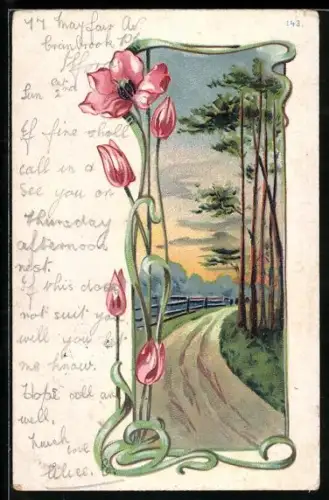 77 Mayfair Av
Cranbrook Rd
Ilford
143.
Sun Oct 2nd
If fine shall
call in &
see you on
Thursday
afternoon
next.
If this does
not suit you
will you let
me know.
Hope all are
well,
much love
Alice.